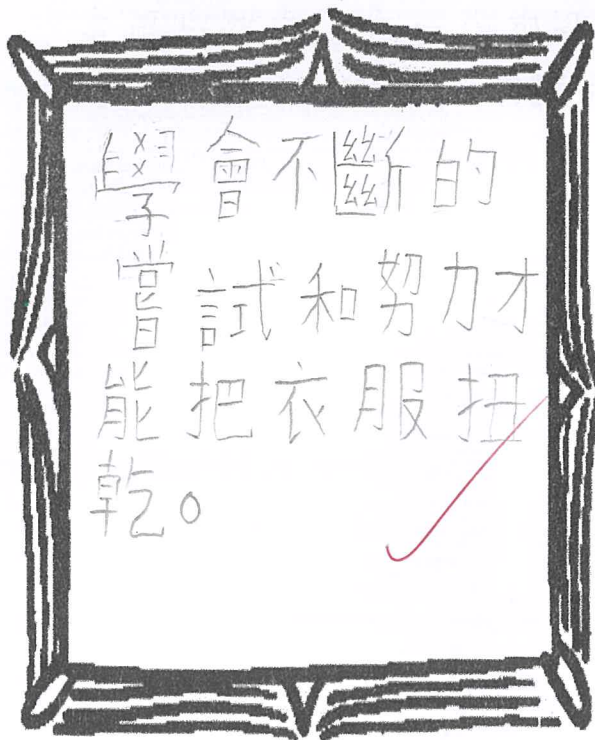 學會不斷的
嘗試和努力才
能把衣服扭
乾。